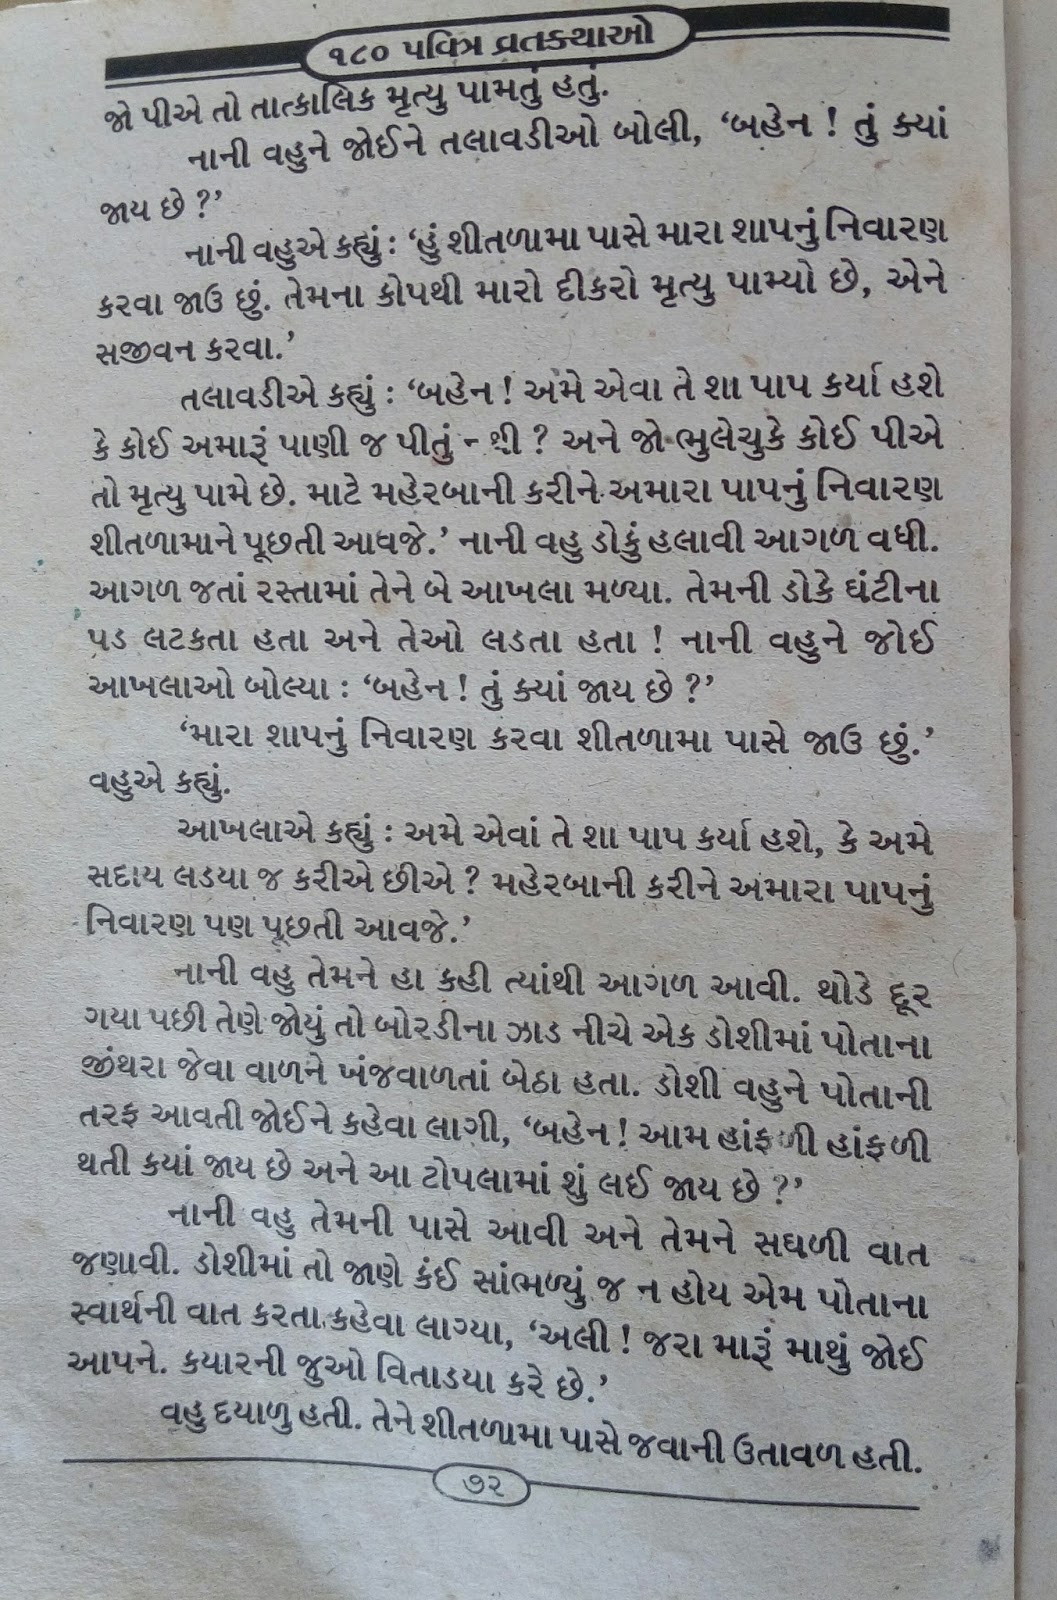 ૧૮૦ પવિત્ર વ્રતકથાઓ
જો પીએ તો તાત્કાલિક મૃત્યુ પામતું હતું.
નાની વહુને જોઈને તલાવડીઓ બોલી, ‘બહેન ! તું ક્યાં
જાય છે ?’
નાની વહુએ કહ્યું : ‘હું શીતળામા પાસે મારા શાપનું નિવારણ
કરવા જાઉ છું. તેમના કોપથી મારો દીકરો મૃત્યુ પામ્યો છે, એને
સજીવન કરવા.’
તલાવડીએ કહ્યું : ‘બહેન ! અમે એવા તે શા પાપ કર્યા હશે
કે કોઈ અમારૂં પાણી જ પીતું નથી ? અને જો ભુલેચુકે કોઈ પીએ
તો મૃત્યુ પામે છે. માટે મહેરબાની કરીને અમારા પાપનું નિવારણ
શીતળામાને પૂછતી આવજે.’ નાની વહુ ડોકું હલાવી આગળ વધી.
આગળ જતાં રસ્તામાં તેને બે આખલા મળ્યા. તેમની ડોકે ઘંટીના
પડ લટકતા હતા અને તેઓ લડતા હતા ! નાની વહુને જોઈ
આખલાઓ બોલ્યા : ‘બહેન ! તું ક્યાં જાય છે ?’
‘મારા શાપનું નિવારણ કરવા શીતળામા પાસે જાઉ છું.’
વહુએ કહ્યું.
આખલાએ કહ્યું : અમે એવાં તે શા પાપ કર્યા હશે, કે અમે
સદાય લડયા જ કરીએ છીએ ? મહેરબાની કરીને અમારા પાપનું
નિવારણ પણ પૂછતી આવજે.’
નાની વહુ તેમને હા કહી ત્યાંથી આગળ આવી. થોડે દૂર
ગયા પછી તેણે જોયું તો બોરડીના ઝાડ નીચે એક ડોશીમાં પોતાના
જીંથરા જેવા વાળને ખંજવાળતાં બેઠા હતા. ડોશી વહુને પોતાની
તરફ આવતી જોઈને કહેવા લાગી, ‘બહેન ! આમ હાંફળી હાંફળી
થતી કયાં જાય છે અને આ ટોપલામાં શું લઈ જાય છે ?’
નાની વહુ તેમની પાસે આવી અને તેમને સઘળી વાત
જણાવી. ડોશીમાં તો જાણે કંઈ સાંભળ્યું જ ન હોય એમ પોતાના
સ્વાર્થની વાત કરતા કહેવા લાગ્યા, ‘અલી ! જરા મારૂં માથું જોઈ
આપને. કયારની જુઓ વિતાડયા કરે છે.’
વહુ દયાળુ હતી. તેને શીતળામા પાસે જવાની ઉતાવળ હતી.
૭૨